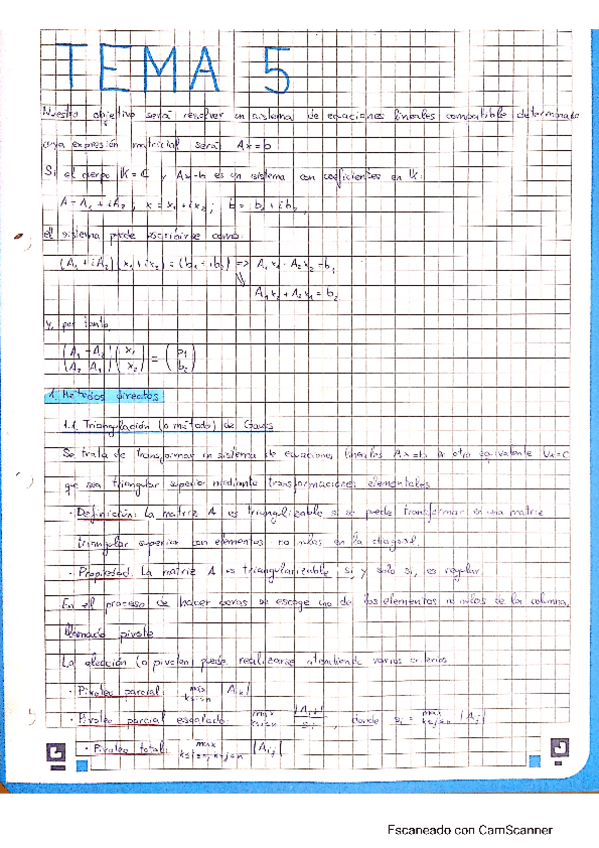 TEMA 5
Nuestro objetivo será resolver un sistema de ecuaciones lineales compatible determinado
cuya expresión matricial será Ax=b
Si el cuerpo K = ℂ y Ax=b es un sistema con coeficientes en K:
A = A₁ + iA₂ ; x = x₁ + ix₂ ; b = b₁ + ib₂,
el sistema puede escribirse como:
(A₁ + iA₂)(x₁ + ix₂) = (b₁ + ib₂) => A₁x₁ - A₂x₂ = b₁
A₁x₂ + A₂x₁ = b₂
y, por tanto,
(A₁ -A₂) (x₁) = (b₁)
(A₂ A₁) (x₂) (b₂)
1. Métodos directos
1.1. Triangulación (o método) de Gauss
Se trata de transformar un sistema de ecuaciones lineales Ax=b a otro equivalente Ux=c
que sea triangular superior mediante transformaciones elementales
· Definición: La matriz A es triangulizable si se puede transformar en una matriz
triangular superior con elementos no nulos en la diagonal.
· Propiedad: La matriz A es triangularizable, si y solo si, es regular.
En el proceso de hacer ceros se escoge uno de los elementos no nulos de la columna,
llamado pivote
La elección (o pivoteo) puede realizarse atendiendo varios criterios
· Pivoteo parcial: máx k≤i≤n |Aᵢₖ|
· Pivoteo parcial escalado: máx k≤i≤n |Aᵢₖ| / sᵢ, donde sᵢ = máx k≤j≤n |Aᵢⱼ|
· Pivoteo total: máx k≤i≤n, k≤j≤n |Aᵢⱼ|
Escaneado con CamScanner